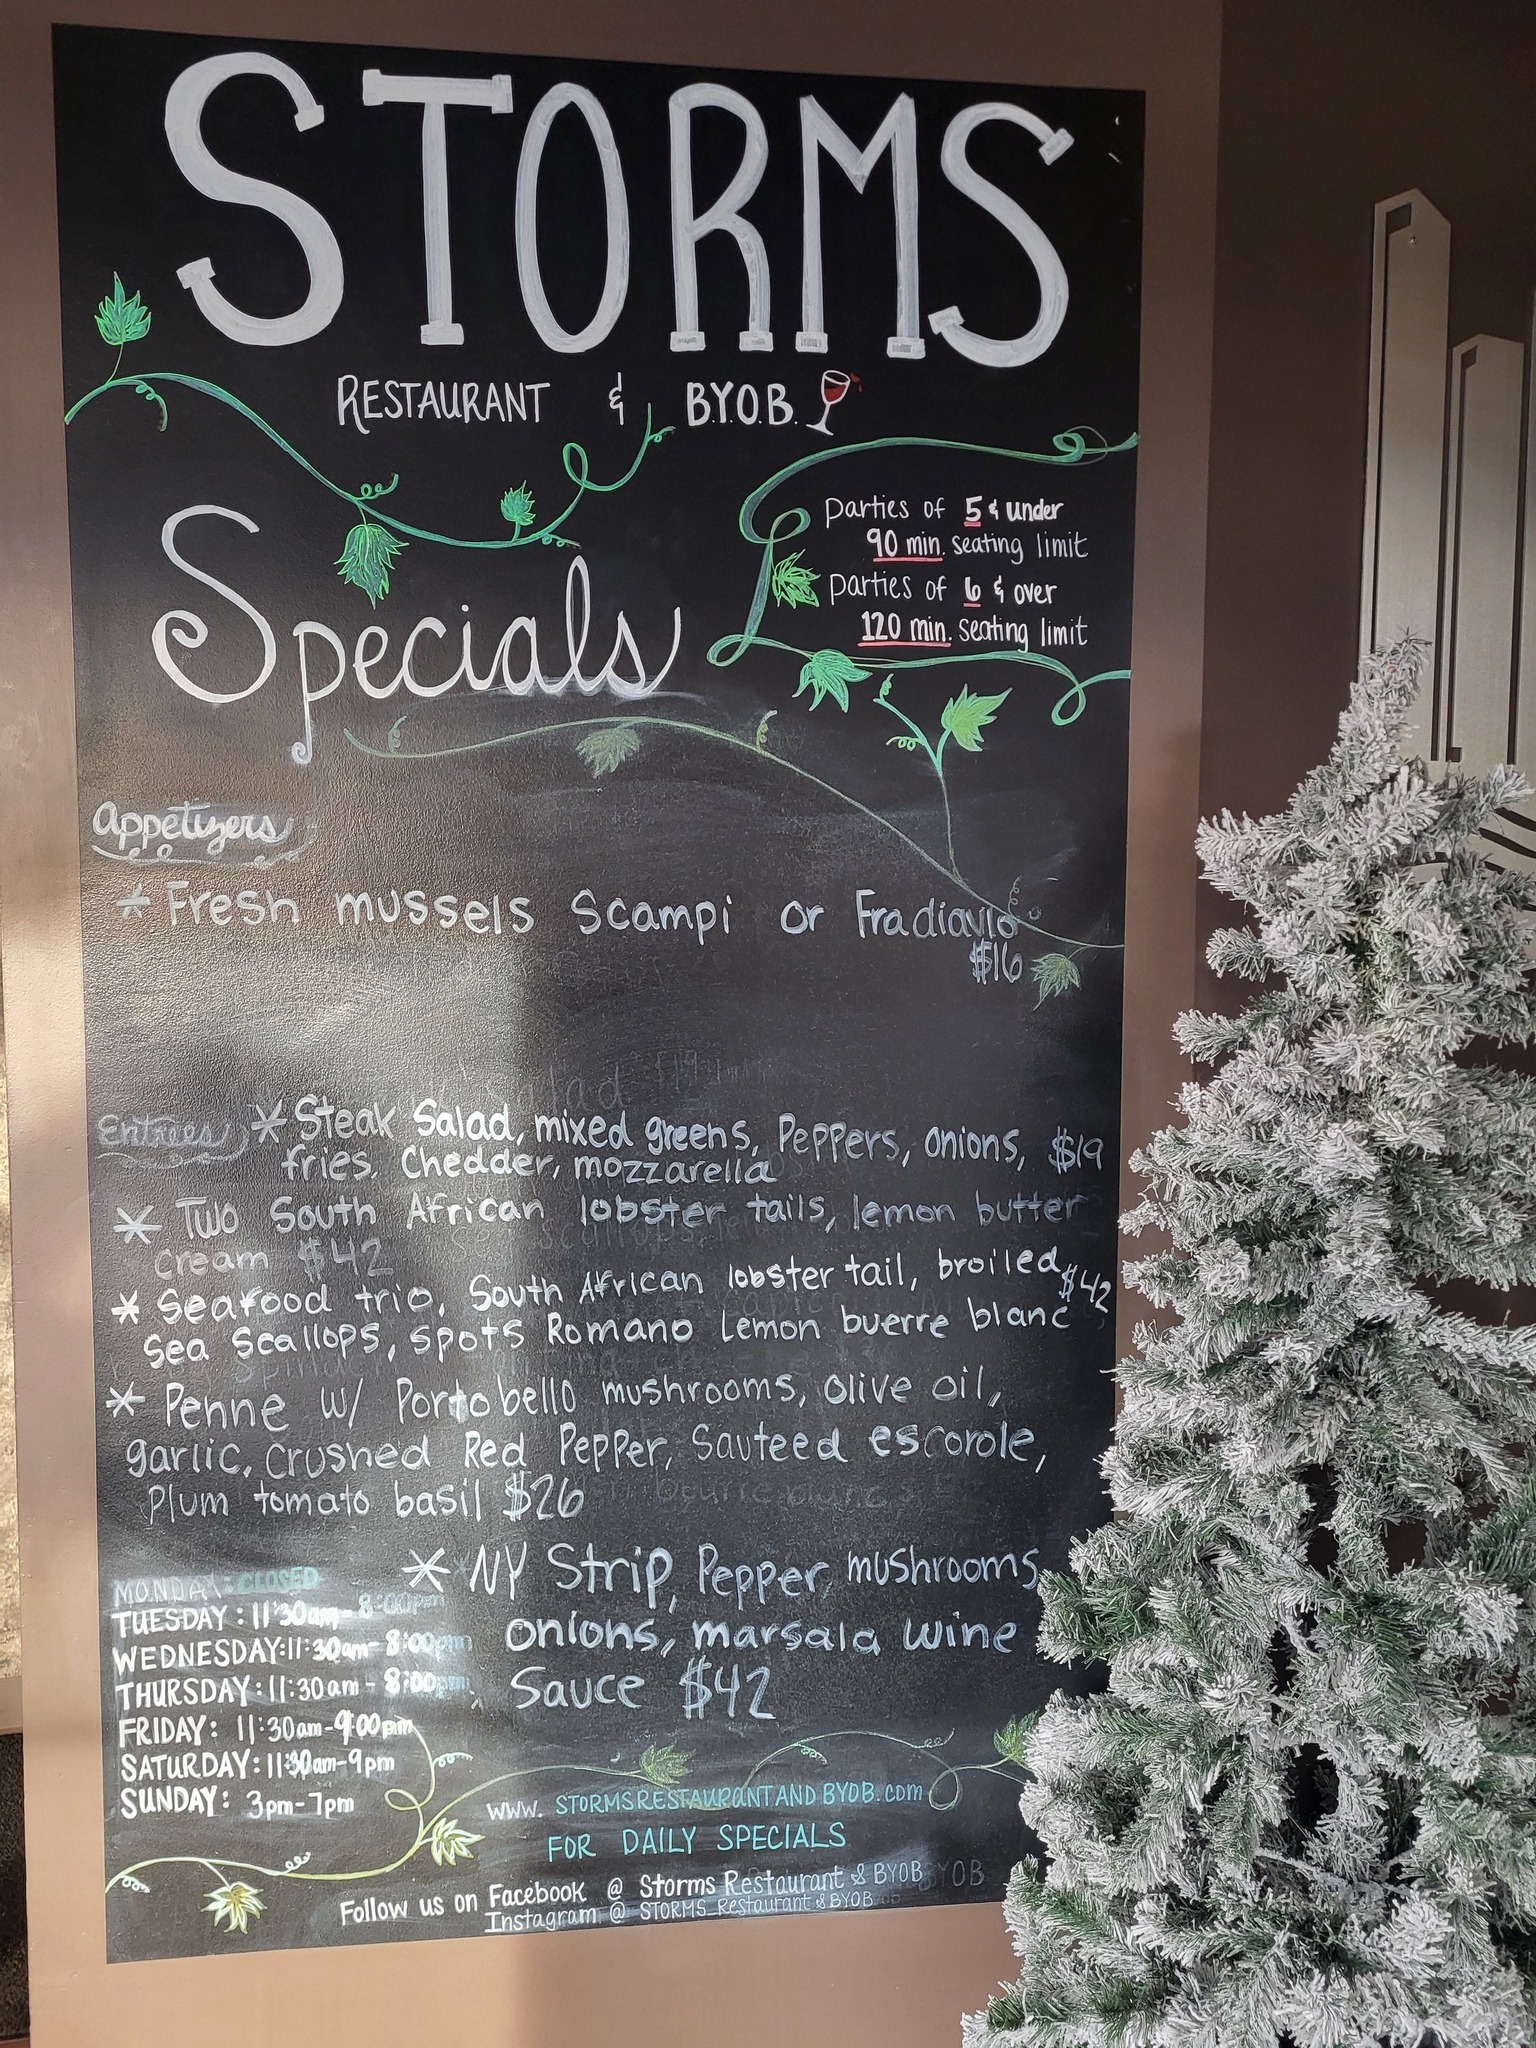 STORMS
RESTAURANT & B.Y.O.B.
Parties of 5 & under
90 min. seating limit
Parties of 6 & over
120 min. seating limit
Specials
Appetizers
* Fresh mussels Scampi or Fradiavlo
$16
Entrees * Steak Salad, mixed greens, Peppers, onions, $19
fries, Chedder, mozzarella
* Two South African lobster tails, lemon butter
cream $42
* Seafood trio, South African lobster tail, broiled $42
sea scallops, spots Romano Lemon buerre blanc
* Penne w/ Portobello mushrooms, olive oil,
garlic, Crushed Red Pepper, Sauteed escorole,
Plum tomato basil $26
* NY Strip, Pepper, mushrooms
onions, marsala wine
Sauce $42
MONDAY: CLOSED
TUESDAY: 11:30am-8:00pm
WEDNESDAY: 11:30am-8:00pm
THURSDAY: 11:30am-8:00pm
FRIDAY: 11:30am-9:00pm
SATURDAY: 11:30am-9pm
SUNDAY: 3pm-7pm
www.STORMSRESTAURANTANDBYOB.com
FOR DAILY SPECIALS
Follow us on Facebook @ Storms Restaurant & BYOB
Instagram @ STORMS Restaurant & BYOB